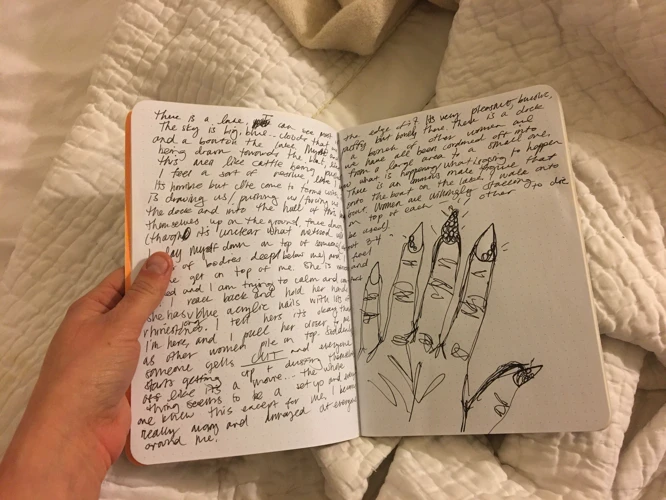 there is a lake, I can see most
The sky is big, blue.. clouds that
and a boat on the lake. Myself and
being drawn towards the boat, like
this area like cattle being
I feel a sort of passive, like I
its horrible but Ive come to terms with
is drawing us / pulling us / forcing us
the dock and into the hull of this
themselves up on the ground, three deep
(though it's unclear what method will
I lay myself down on top of someone (about 3-4
of bodies deep below me) and
get on top of me. She is
and I am trying to calm and
I reach back and hold her hand
she has long blue acrylic nails with lots of
rhinestones. I tell hers its okay that
I'm here, and I pull her closer to me
as other women pile on top. Suddenly
someone yells CUT and everyone
starts getting up + dusting themselves
its like its a movie... the whole
thing seems to be a set up and every
one knew this except for me. I become
really angry and enraged at everyone
around me.
the edge of it. Its very pleasant, bucolic,
pretty but lonely there. There is a dock
a bunch of other women and
we have all been corralled off into
from a large area to a small one,
know what is happening, what is going to happen
There is an ominous male figure that
onto the boat on the lake. I walk onto
boat. Women are willingly stacking
on top of each other to die
be used).
feel
and